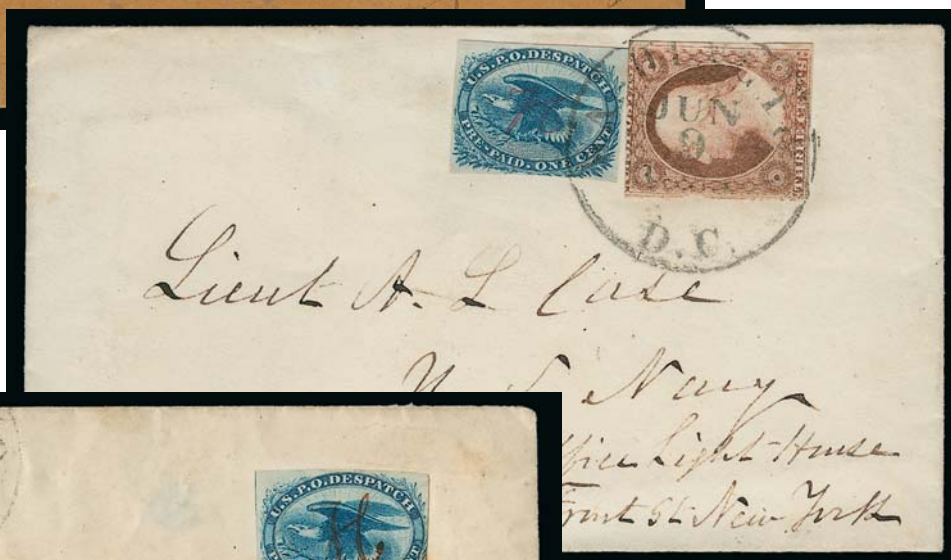 U.S.P.O. DESPATCH
PRE-PAID. ONE CENT
JUN
9
D.C.
Lieut A. L Case
U. S. Navy
Light-House
Front St New York
U.S.P.O. DESPATCH